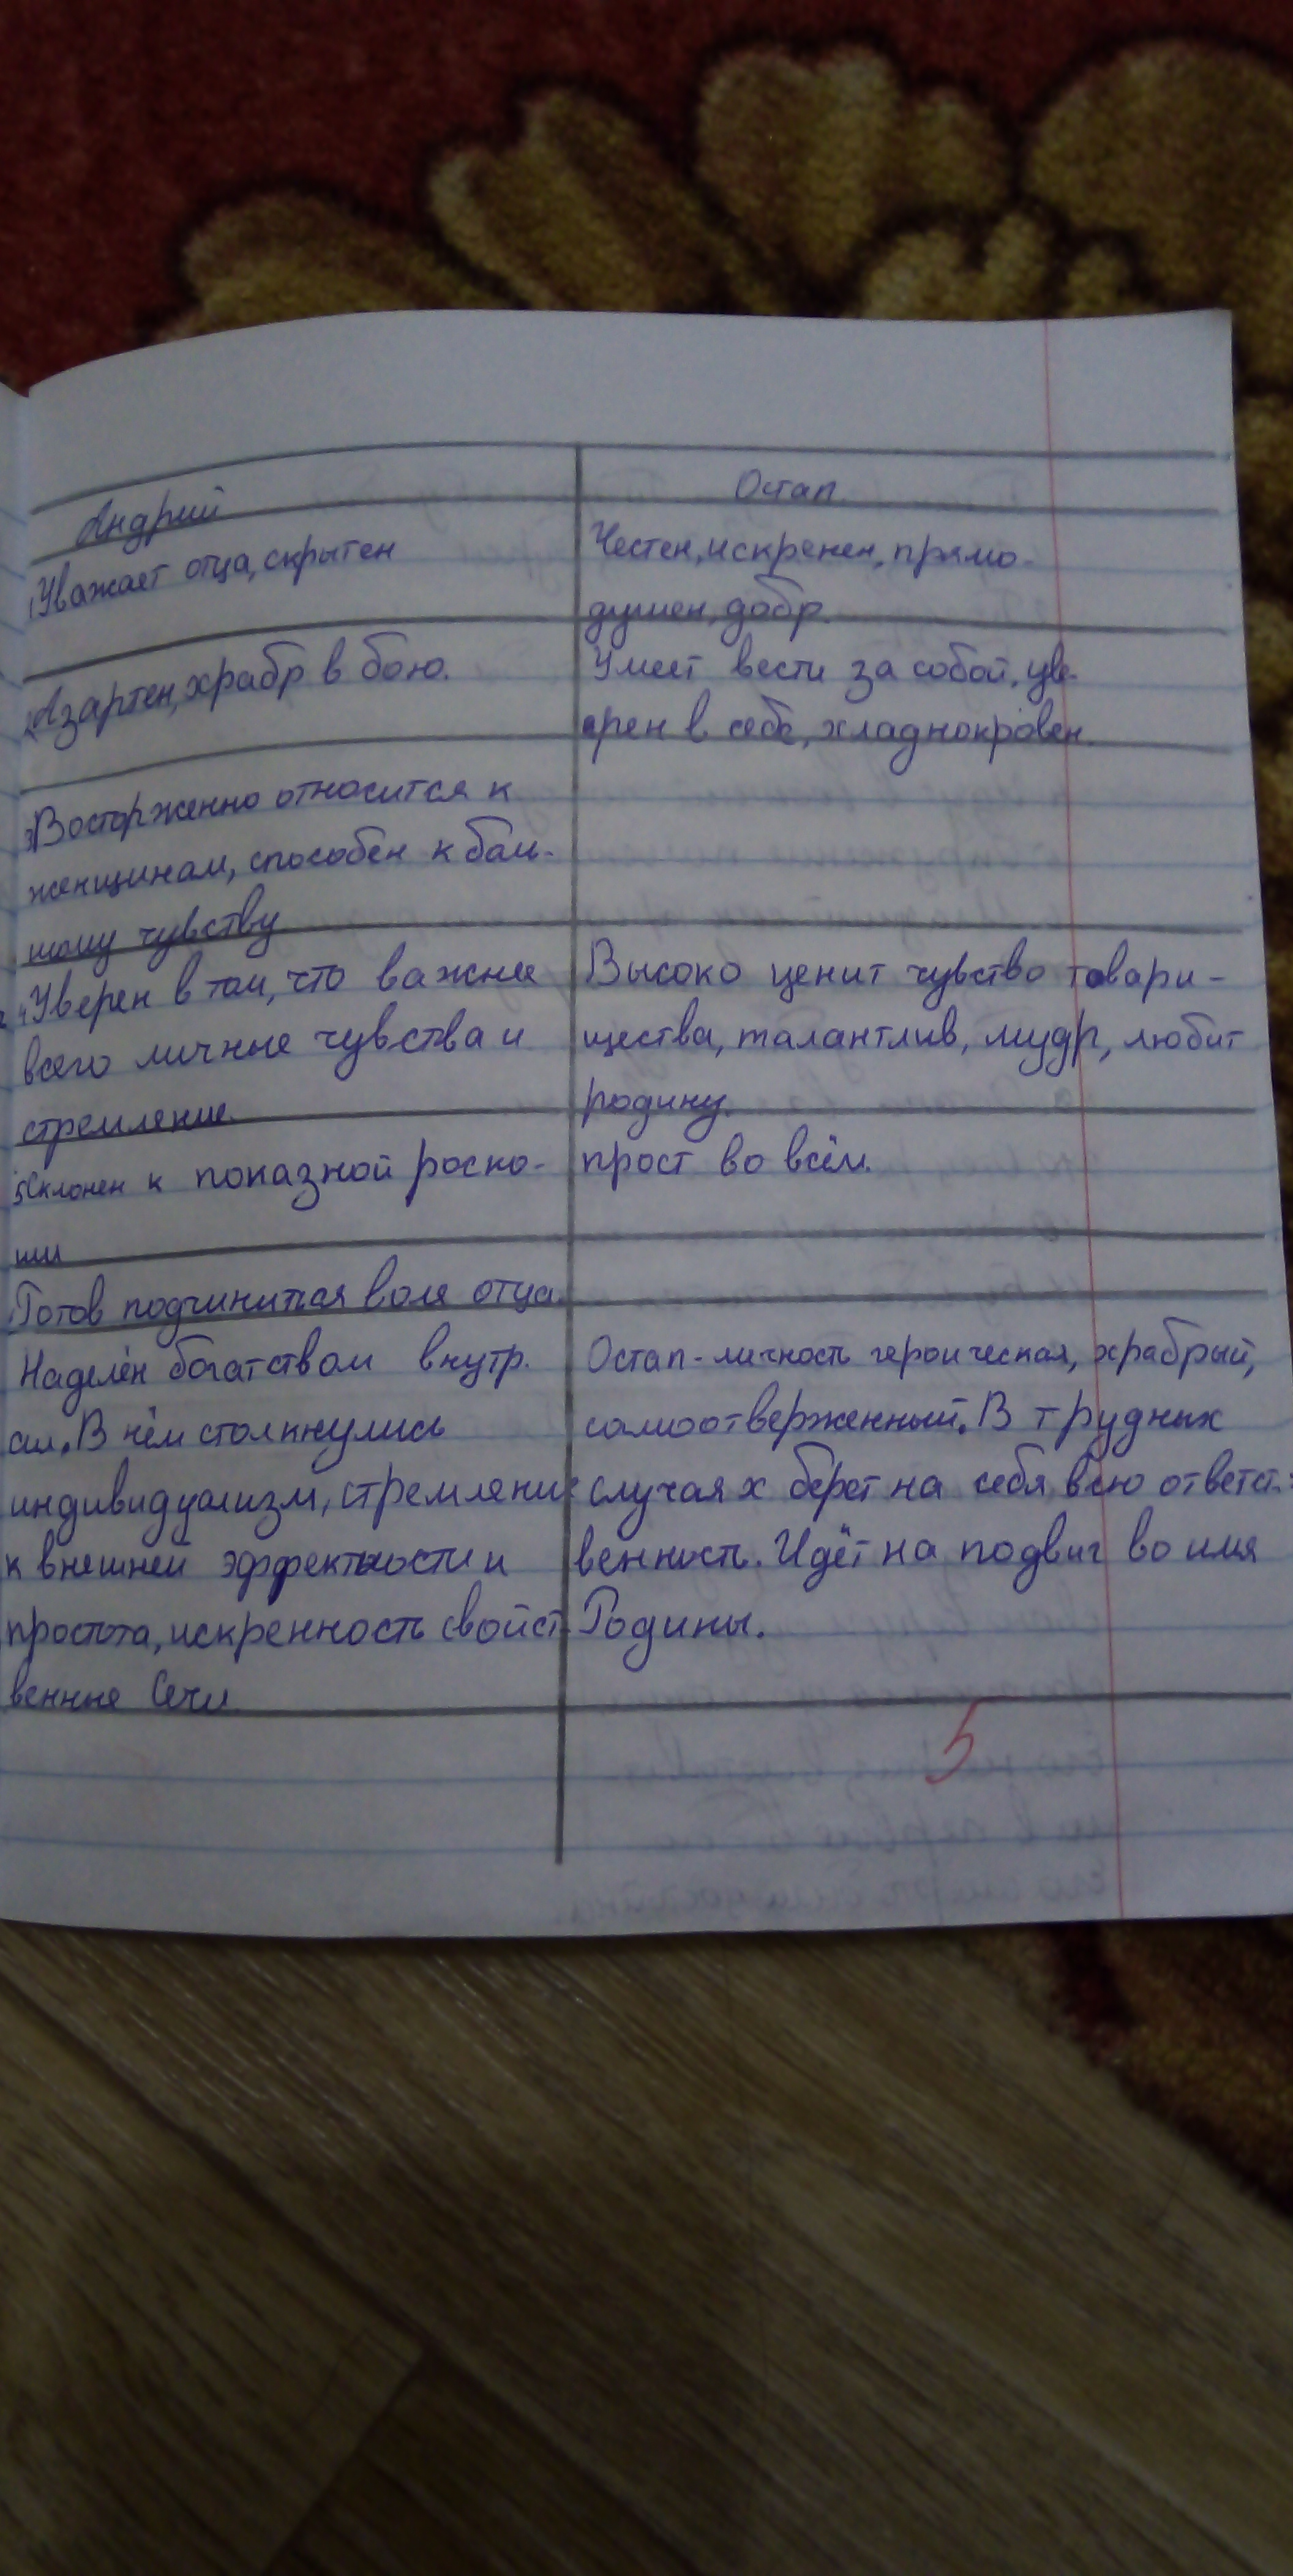 Андрий
Остап
1Уважает отца, скрытен
Честен, искренен, прямо-
душен, добр.
2Азартен, храбр в бою.
Умеет вести за собой, уве-
рен в себе, хладнокровен.
3Восторженно относится к
женщинам, способен к боль-
шому чувству
4Уверен в том, что важнее
всего личные чувства и
стремление.
Высоко ценит чувство товари-
щества, талантлив, мудр, любит
родину.
5Склонен к показной роско-
ши
прост во всём.
Готов подчинится воле отца.
Наделён богатством внутр.
сил. В нём столкнулись
индивидуализм, стремление
к внешней эффектности и
простота, искренность свойст-
венные Сечи.
Остап-личность героическая, храбрый,
самоотверженный. В трудных
случаях берет на себя всю ответст-
венность. Идёт на подвиг во имя
Родины.
5